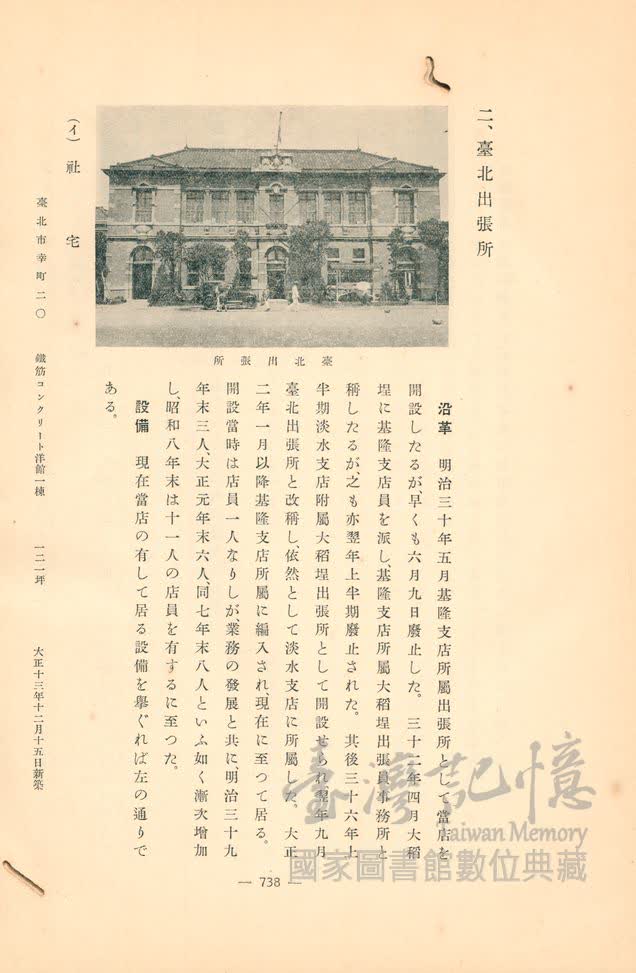 二、臺北出張所
臺北出張所
沿革　明治三十年五月基隆支店所屬出張所として當店を
開設したるが、早くも六月九日廢止した。　三十二年四月大稻
埕に基隆支店員を派し、基隆支店所屬大稻埕出張員事務所と
稱したるが、之も亦翌年上半期廢止された。　其後三十六年上
半期淡水支店附屬大稻埕出張所として開設せられ、翌年九月
臺北出張所と改稱し、依然として淡水支店に所屬した。　大正
二年一月以降基隆支店所屬に編入され、現在に至つて居る。
開設當時は店員一人なりしが、業務の發展と共に、明治三十九
年末三人、大正元年末六人、同七年末八人といふ如く漸次增加
し、昭和八年末は十一人の店員を有するに至つた。
設備　現在當店の有して居る設備を擧ぐれば左の通りで
ある。
（イ）社宅
臺北市幸町二〇　鐵筋コンクリート洋館一棟　一二一坪　大正十三年十二月十五日新築
— 738 —
臺灣記憶
Taiwan Memory
國家圖書館數位典藏